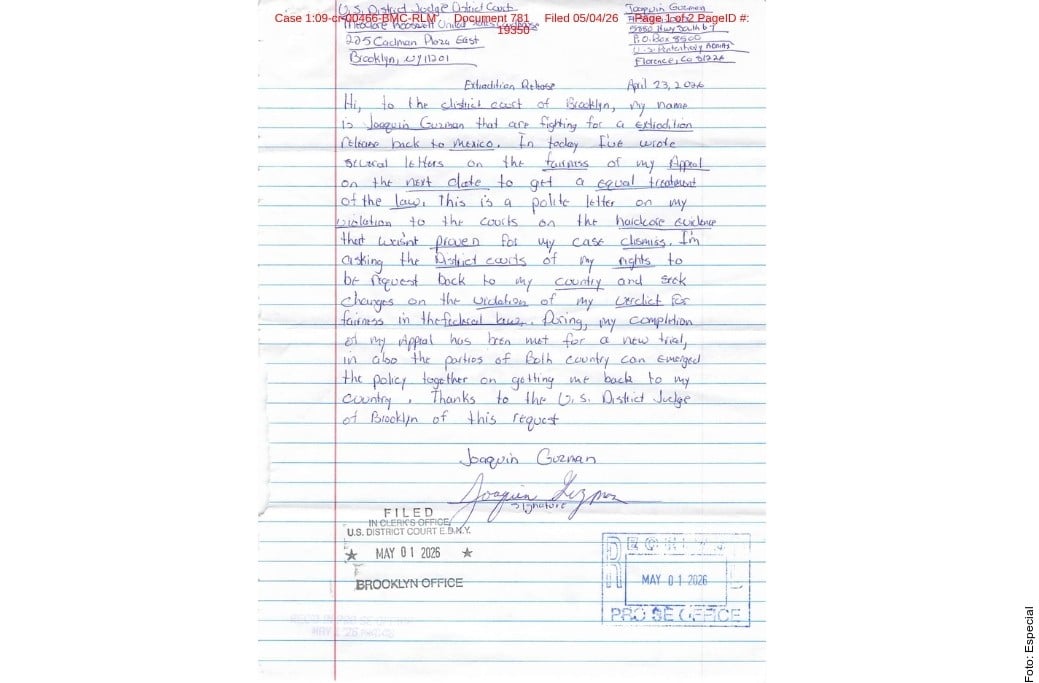 U.S. District Judge District Court
Joaquin Guzman
Case 1:09-cr-00466-BMC-RLM Document 781 Filed 05/04/26 Page 1 of 2 PageID #:
19350
Theodore Roosevelt United States
5880 Hwy South 67
225 Cadman Plaza East
P.O. Box 8500
U.S. Penitentiary
Brooklyn, NY 11201
Florence, Co 81226
Extradition Release
April 23, 2026
Hi, to the district court of Brooklyn, my name
is Joaquin Guzman that are fighting for a extradition
release back to mexico. In today I've wrote
several letters on the fairness of my Appeal
on the next date to get a equal treatment
of the law. This is a polite letter on my
violation to the courts on the hardcore evidence
that wasn't proven for my case dismiss. I'm
asking the District courts of my rights to
be request back to my country and seek
changes on the violation of my verdict for
fairness in the federal law. Doing, my completion
of my Appeal has been met for a new trial,
in also the parties of Both country can emerged
the policy together on getting me back to my
country. Thanks to the U.S. District Judge
of Brooklyn of this request
Joaquin Guzman
Joaquin Guzman
Signature
FILED
IN CLERK'S OFFICE
U.S. DISTRICT COURT E.D.N.Y.
★ MAY 01 2026 ★
BROOKLYN OFFICE
MAY 01 2026
PRO SE OFFICE
Foto: Especial